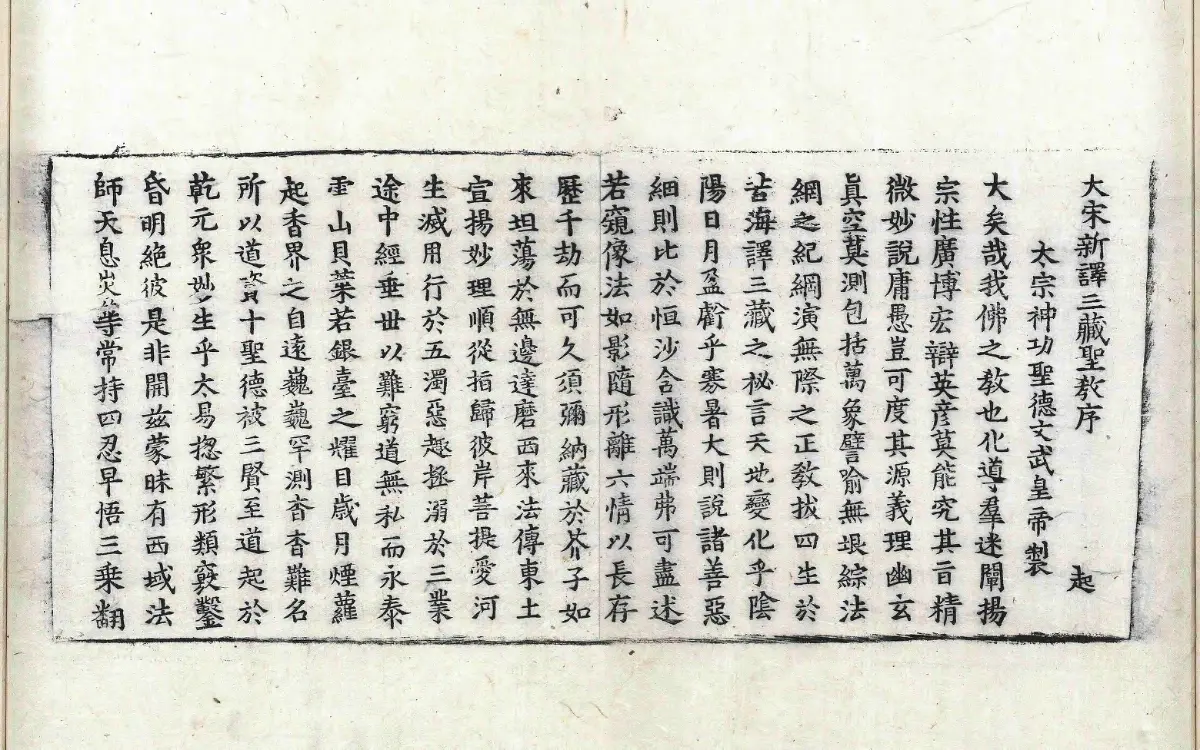 大宋新譯三藏聖教序　　起
太宗神功聖德文武皇帝製
大矣哉我佛之教也化導羣迷闡揚
宗性廣博宏辯英彦莫能究其旨精
微妙說庸愚豈可度其源義理幽玄
眞空莫測包括萬象譬喻無垠綜法
網之紀綱演無際之正教拔四生於
苦海譯三藏之祕言天地變化乎陰
陽日月盈虧乎寒暑大則說諸善惡
細則比於恒沙含識萬端弗可盡述
若窺像法如影隨形離六情以長存
歷千劫而可久須彌納藏於芥子如
來坦蕩於無邊達磨西來法傳東土
宣揚妙理順從指歸彼岸菩提愛河
生滅用行於五濁惡趣拯溺於三業
途中經垂丗以難窮道無私而永泰
雪山貝葉若銀臺之耀目歲月煙蘿
起香界之自遠巍巍罕測杳杳難名
所以道資十聖德被三賢至道起於
乾元衆妙生乎太易揔繁形類竅鑿
昏明絕彼是非開兹蒙昧有西域法
師天息災等常持四忍早悟三乘翻